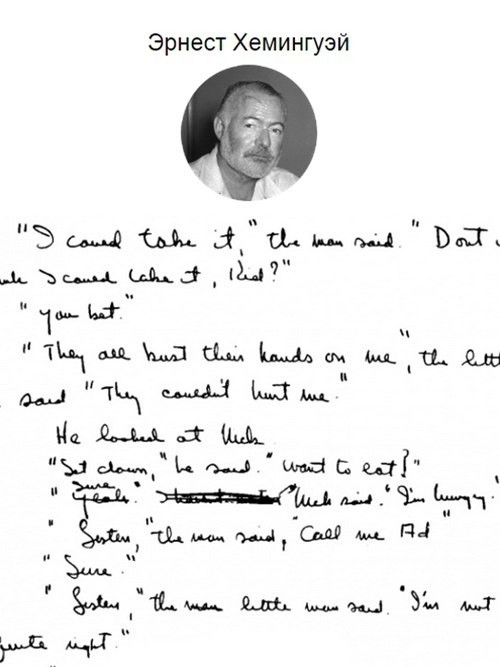 Эрнест Хемингуэй
"I could take it," the man said. "Dont
I could take it, Kid?"
"You bet."
"They all bust their hands on me", the little
said "They couldn't hurt me."
He looked at Nick
"Sit down," he said. "Want to eat?"
Sure
"Yeah." Nick said. "I'm hungry."
"Listen," the man said, "Call me Ad"
"Sure."
"Listen," the man little man said. "I'm not
quite right."